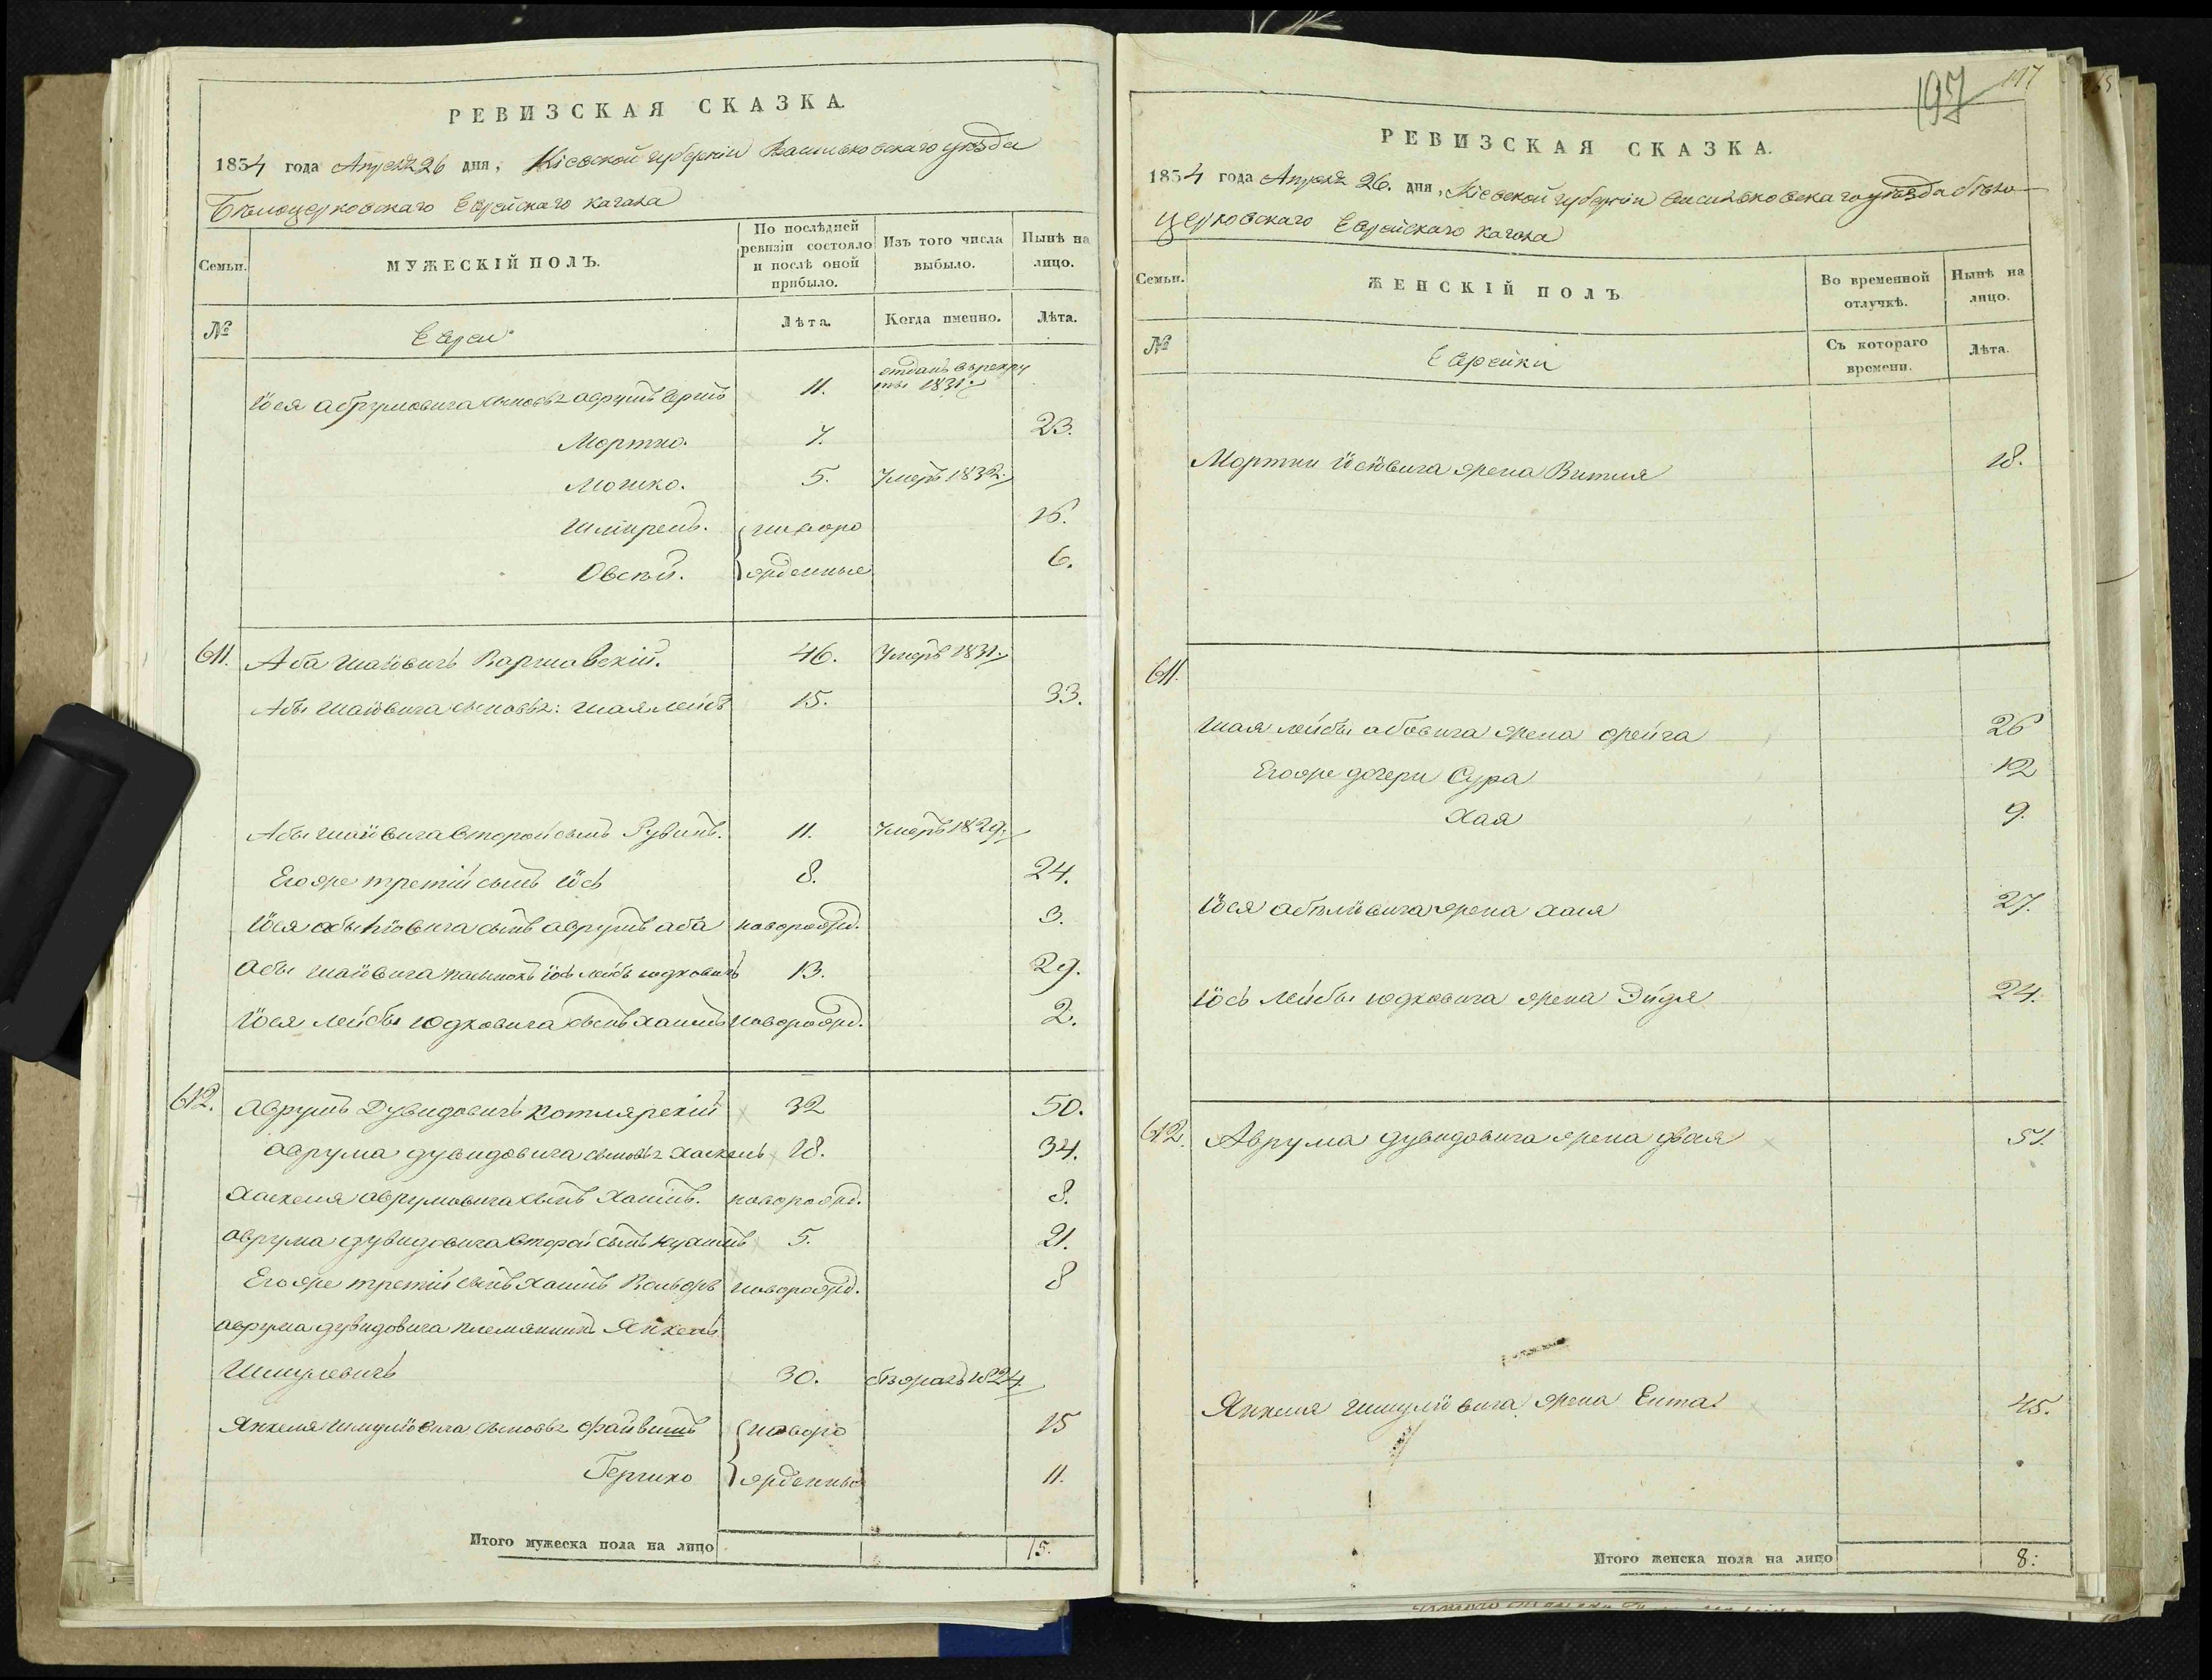 РЕВИЗСКАЯ СКАЗКА.
1834 года Апреля 26 дня, Кіевской губерніи Васильковскаго уѣзда
Бѣлоцерковскаго Еврейскаго кагала
Семьи.
МУЖЕСКІЙ ПОЛЪ.
По послѣдней ревизіи состояло и послѣ оной прибыло.
Изъ того числа выбыло.
Нынѣ на лицо.
№
Евреи
Лѣта.
Когда именно.
Лѣта.
Іося Аврумовича сыновья Аврумъ Бершъ 11. отданъ въ рекру
ты 1831.
Мортко. 7. 23.
Мошко. 5. Умеръ 1832.
новоро 16.
Овсѣй. жденные 6.
611. Аба Шаіовичъ Варшавскій. 46. Умеръ 1831.
Абы Шаіовича сыновья: Шая Лейбъ 15. 33.
Абы Шаіовича второй сынъ Рувинъ. 11. Умеръ 1829.
Егоже третій сынъ Іось 8. 24.
Іося сынъ Аврумъ Аба новорожд. 3.
Абы Шаіовича пасынокъ Іось Лейбъ Юдковичъ 13. 29.
Іося Лейбы Юдковича сынъ Хаимъ новорожд. 2.
612. Аврумъ Дувидовичъ Котлярскій 32 50.
Аврума Дувидовича сыновья Хаскель 18. 34.
Хаскеля Аврумовича сынъ Хаимъ. новорожд. 8.
Аврума Дувидовича второй сынъ Нухимъ 5. 21.
Егоже третій сынъ Хаимъ Вольфъ новорожд. 8
Аврума Дувидовича племянникъ Янкель
Шмулевичъ 30. бѣжалъ 1824.
Янкеля Шмуліовича сыновья Файвишъ новоро 15
Гершко жденные 11.
Итого мужеска пола на лицо 15.
197
197
РЕВИЗСКАЯ СКАЗКА.
1834 года Апреля 26. дня, Кіевской губерніи Васильковскаго уѣзда бѣло
церковскаго Еврейскаго кагала
Семьи.
ЖЕНСКІЙ ПОЛЪ
Во временной отлучкѣ.
Нынѣ на лицо.
№
Еврейки
Съ котораго времени.
Лѣта.
Мортки Іосіовича жена Витля 18.
611.
Шая Лейбы Абовича жена Фрейга 26
Егоже дочери Сура 12
Хая 9.
Іося жена Хася 27.
Іось Лейбы Юдковича жена Эйдя 24.
612. Аврума Дувидовича жена Двося 51.
Янкеля Шмуліовича жена Ента. 45.
Итого женска пола на лицо 8.